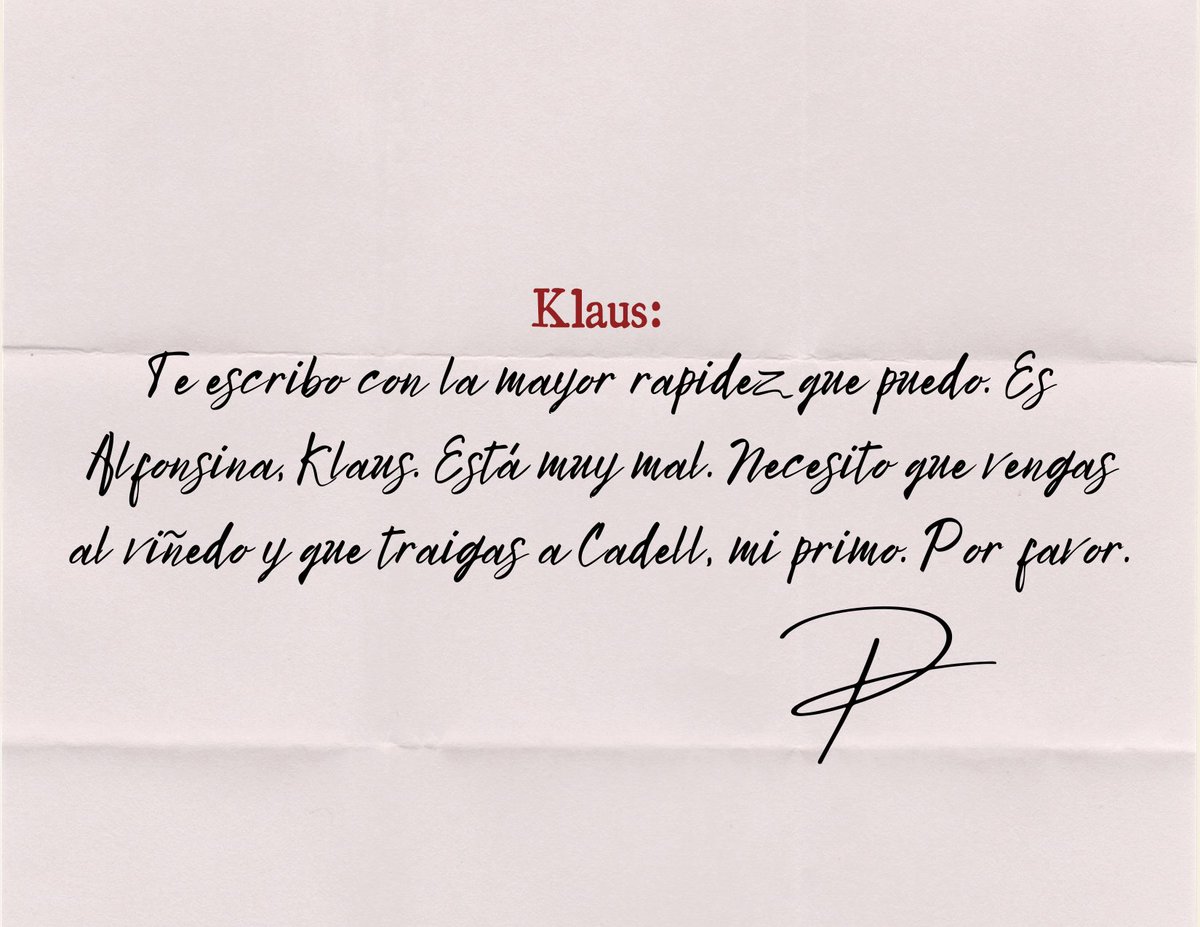 Klaus:
Te escribo con la mayor rapidez que puedo. Es
Alfonsina, Klaus. Está muy mal. Necesito que vengas
al viñedo y que traigas a Cadell, mi primo. Por favor.
P